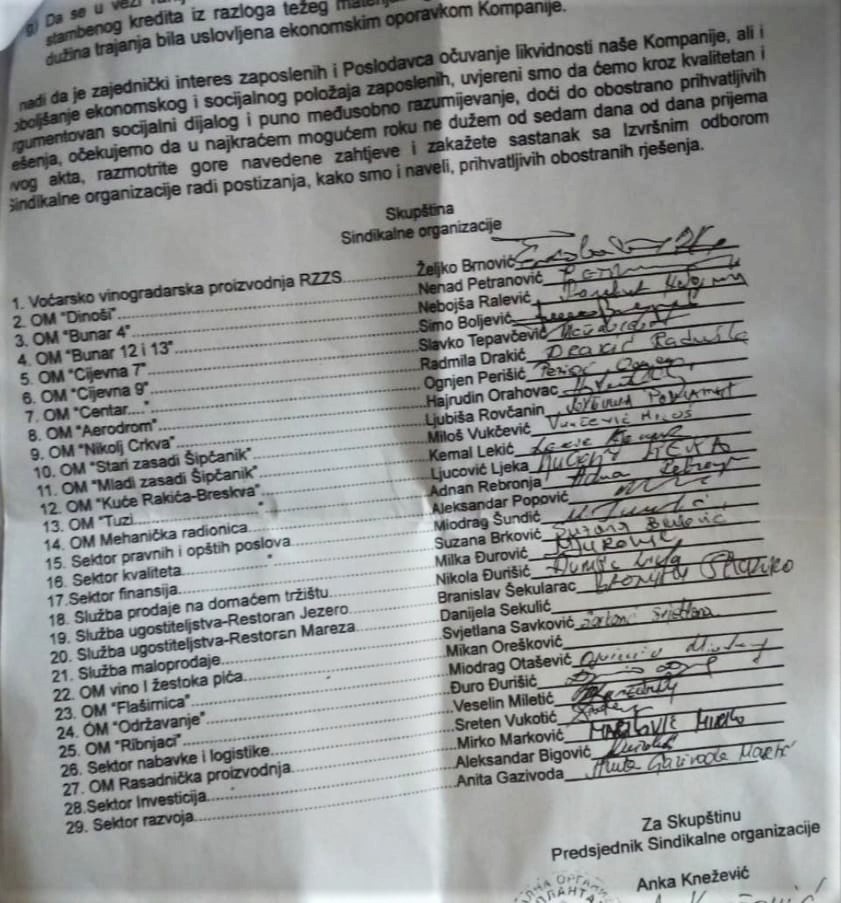 g) Da se u vezi
stambenog kredita iz razloga težeg
dužina trajanja bila uslovljena ekonomskim oporavkom Kompanije.
nadi da je zajednički interes zaposlenih i Poslodavca očuvanje likvidnosti naše Kompanije, ali i
oboljšanje ekonomskog i socijalnog položaja zaposlenih, uvjereni smo da ćemo kroz kvalitetan i
rgumentovan socijalni dijalog i puno međusobno razumijevanje, doći do obostrano prihvatljivih
ešenja, očekujemo da u najkraćem mogućem roku ne dužem od sedam dana od dana prijema
vog akta, razmotrite gore navedene zahtjeve i zakažete sastanak sa Izvršnim odborom
Sindikalne organizacije radi postizanja, kako smo i naveli, prihvatljivih obostranih rješenja.
Skupština
Sindikalne organizacije
1. Voćarsko vinogradarska proizvodnja RZZS Željko Brnović
2. OM "Dinoši" Nenad Petranović
3. OM "Bunar 4" Nebojša Ralević
4. OM "Bunar 12 i 13" Simo Boljević
5. OM "Cijevna 7" Slavko Tepavčević
6. OM "Cijevna 9" Radmila Drakić
7. OM "Centar...." Ognjen Perišić
8. OM "Aerodrom" Hajrudin Orahovac
9. OM "Nikolj Crkva" Ljubiša Rovčanin
10. OM "Stari zasadi Šipčanik" Miloš Vukčević
11. OM "Mladi zasadi Šipčanik" Kemal Lekić
12. OM "Kuće Rakića-Breskva" Ljucović Ljeka
13. OM "Tuzi" Adnan Rebronja
14. OM Mehanička radionica Aleksandar Popović
15. Sektor pravnih i opštih poslova Miodrag Šundić
16. Sektor kvaliteta Suzana Brković
17.Sektor finansija Milka Đurović
18. Služba prodaje na domaćem tržištu Nikola Đurišić
19. Služba ugostiteljstva-Restoran Jezero Branislav Šekularac
20. Služba ugostiteljstva-Restoran Mareza Danijela Sekulić
21. Služba maloprodaje Svjetlana Savković
22. OM vino I žestoka pića Mikan Orešković
23. OM "Flaširnica" Miodrag Otašević
24. OM "Održavanje" Đuro Đurišić
25. OM "Ribnjaci" Veselin Miletić
26. Sektor nabavke i logistike Sreten Vukotić
27. OM Rasadnička proizvodnja Mirko Marković
28.Sektor Investicija Aleksandar Bigović
29. Sektor razvoja Anita Gazivoda
Za Skupštinu
Predsjednik Sindikalne organizacije
Anka Knežević